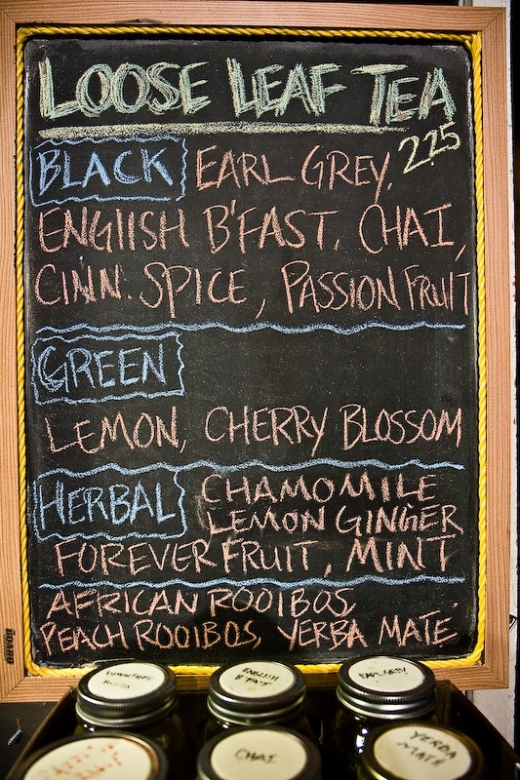 LOOSE LEAF TEA
2.25
BLACK EARL GREY,
ENGLISH B'FAST, CHAI,
CINN. SPICE, PASSION FRUIT
GREEN
LEMON, CHERRY BLOSSOM
HERBAL CHAMOMILE
LEMON GINGER
FOREVER FRUIT, MINT
AFRICAN ROOIBOS
PEACH ROOIBOS, YERBA MATE
BOARD
ENGLISH
B'FAST
EARL GREY
CHAI
YERBA
MATE